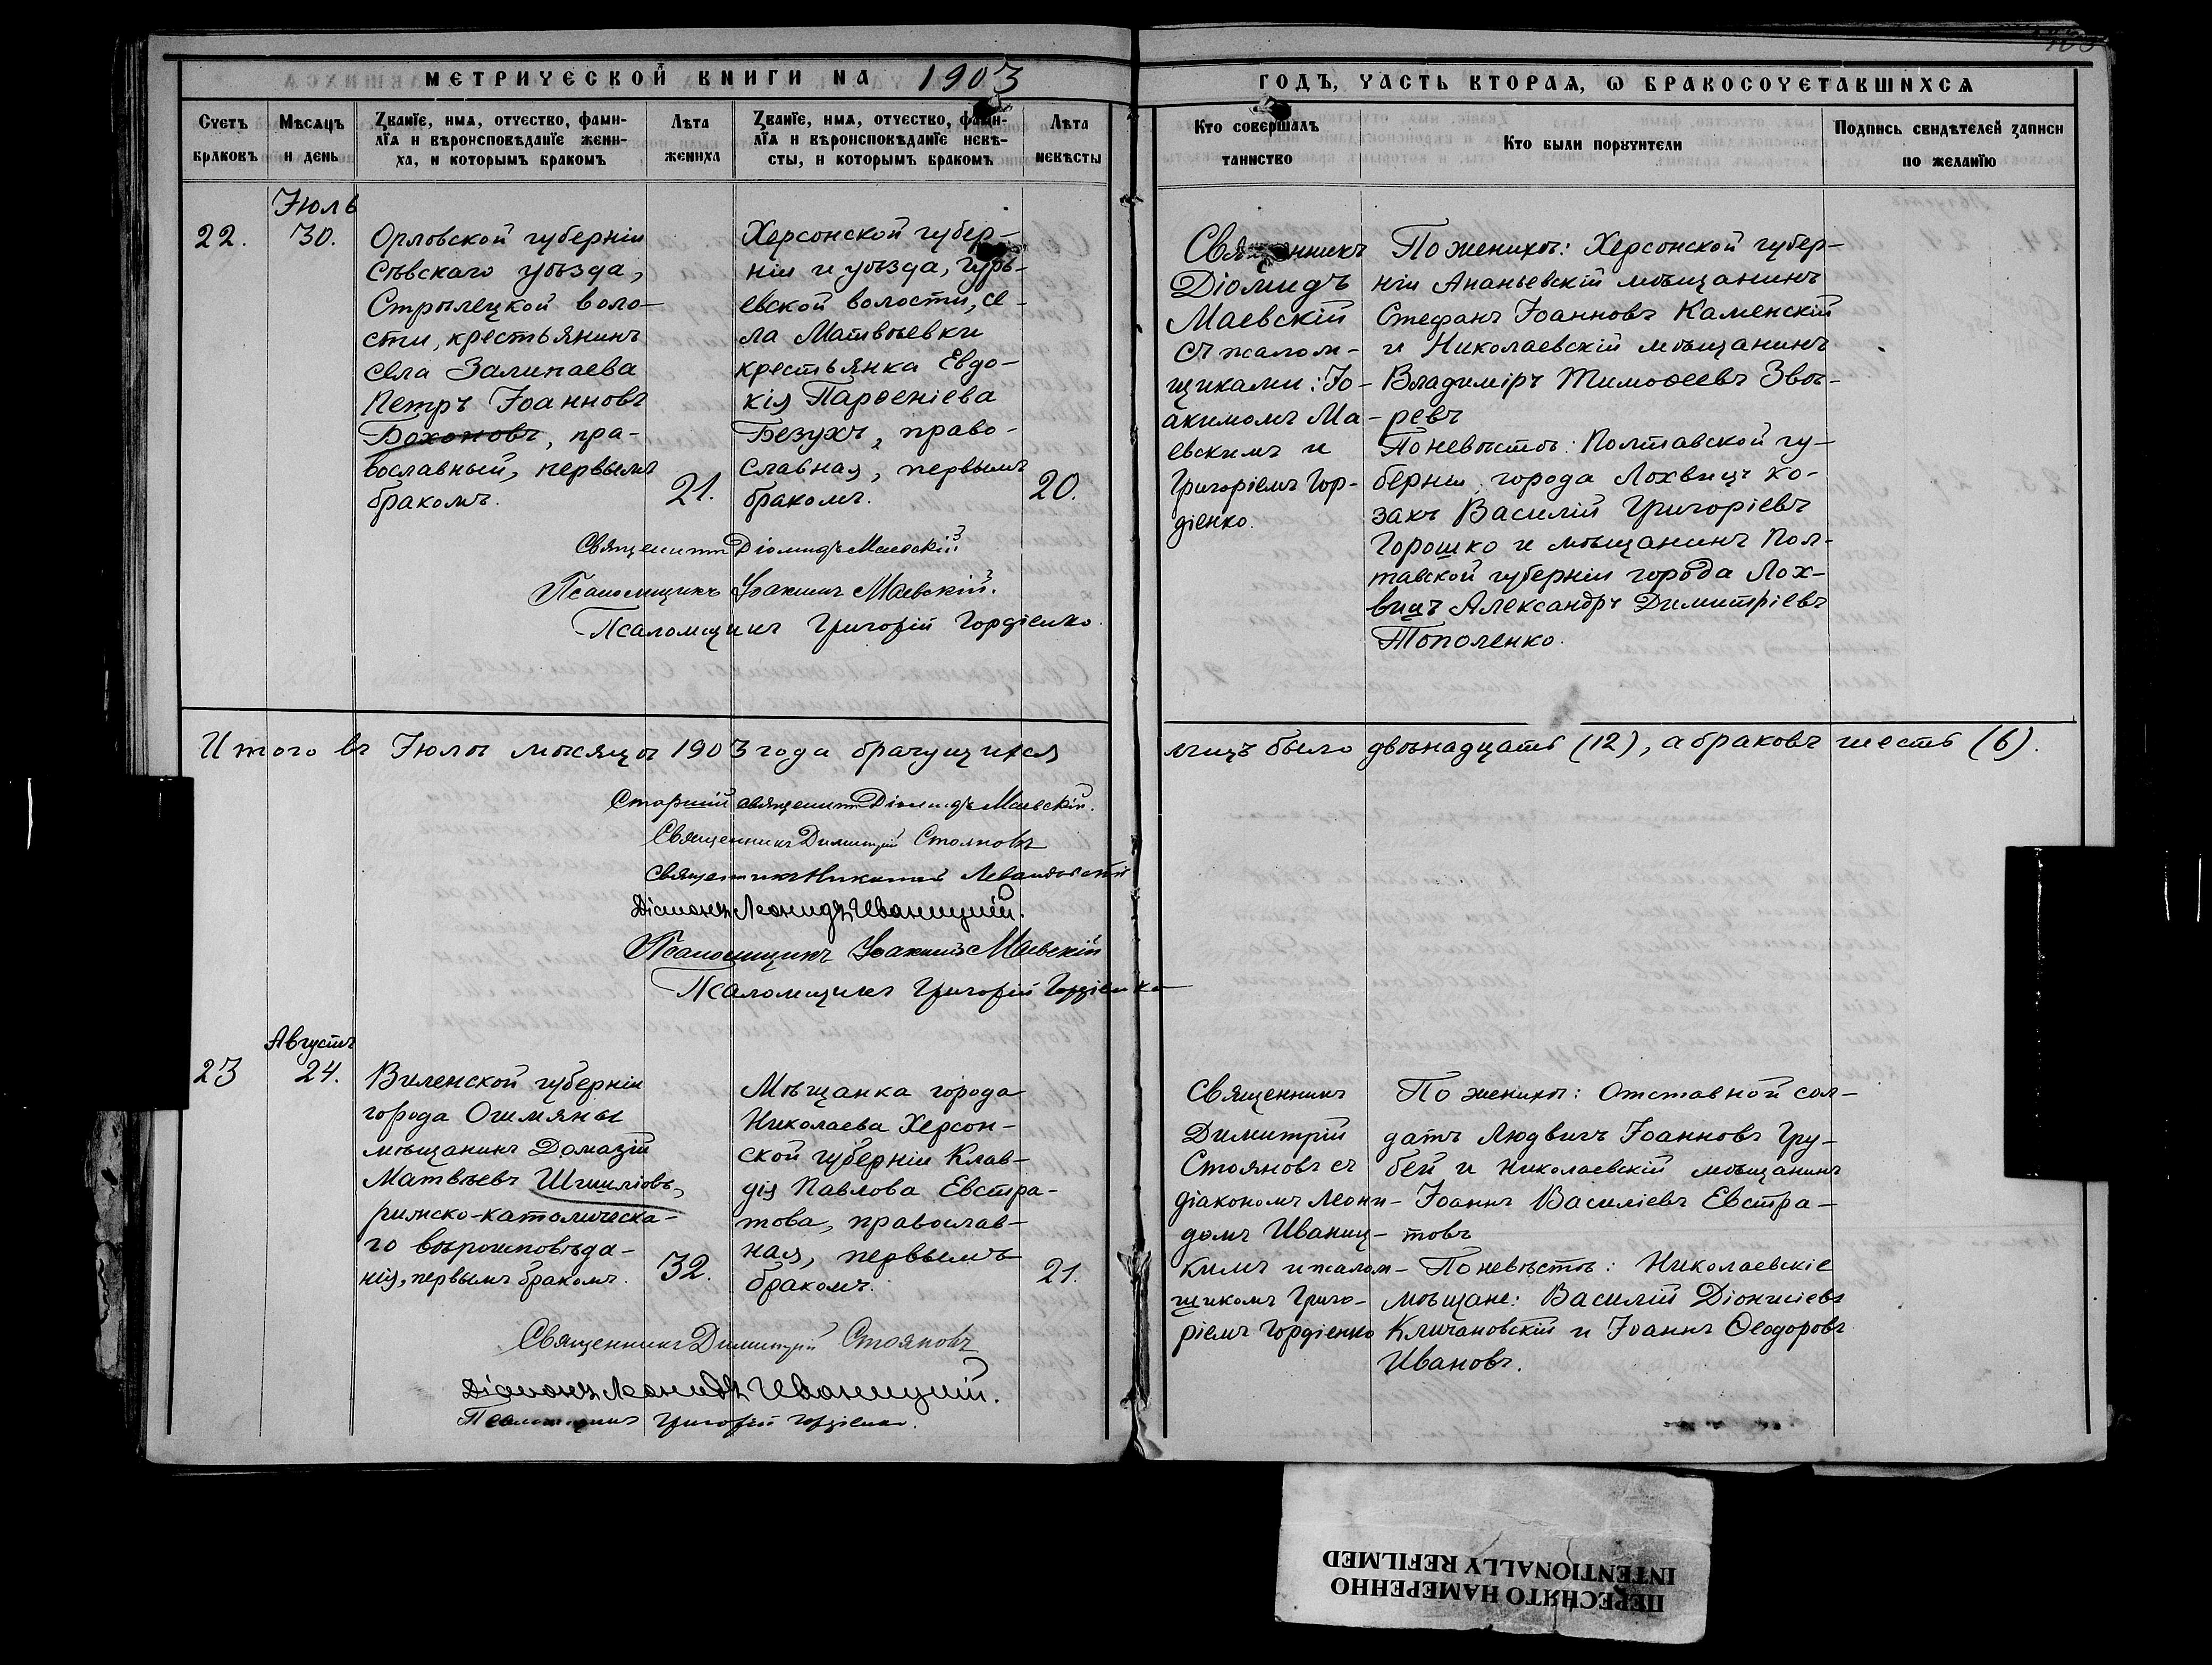 МЕТРИЧЕСКОЙ КНИГИ НА 1903
ГОДЪ, ЧАСТЬ ВТОРАѦ, Ѡ БРАКОСОЧЕТАВШИХСѦ
Счетъ браковъ
Мѣсѧцъ и день
Званїе, имѧ, отчество, фамилїѧ и вѣроисповѣданїе жениха, и которымъ бракомъ
Лѣта жениха
Званїе, имѧ, отчество, фамилїѧ и вѣроисповѣданїе невѣсты, и которымъ бракомъ
Лѣта невѣсты
Кто совершалъ таинство
Кто были поручители
Подпись свидѣтелей записи по желанїю
22.
Іюль
30.
Орловской губерніи
Сѣвскаго уѣзда,
Стрѣлецкой воло-
сти, крестьянинъ
села Залипаева
Петръ Іоанновъ
Бохоновъ, пра-
вославный, первымъ
бракомъ.
21.
Херсонской губер-
ніи и уѣзда, Гурь-
евской волости, се-
ла Матвѣевки
крестьянка Евдо-
кія Парѳеніева
Безухъ, право-
славная, первымъ
бракомъ.
20.
Священникъ
Діомидъ
Маевскій
съ псалом-
щиками: Іо-
акимомъ Ма-
евскимъ и
Григоріемъ Гор-
діенко.
По женихѣ: Херсонской губер-
ніи Ананьевскій мѣщанинъ
Стефанъ Іоанновъ Каменскій
и Николаевскій мѣщанинъ
Владиміръ Тимоѳеевъ Звѣ-
ревъ
По невѣстѣ: Полтавской гу-
берніи, города Лохвицъ ко-
закъ Василій Григоріевъ
Горошко и мѣщанинъ Пол-
тавской губерніи города Лох-
вицъ Александръ Димитріевъ
Тополенко.
Священникъ Діомидъ Маевскій
Псаломщикъ Іоакимъ Маевскій.
Псаломщикъ Григорій Гордіенко.
Итого въ Іюлѣ мѣсяцѣ 1903 года брачущихся
лицъ было двѣнадцать (12), а браковъ шесть (6).
Старшій священникъ Діомидъ Маевскій.
Священникъ Димитрій Стояновъ
Священникъ Никита Левандовскій
Діаконъ Леонидъ Иваницкій.
Псаломщикъ Іоакимъ Маевскій
Псаломщикъ Григорій Гордіенко
23
Августъ
24.
Виленской губерніи
города Ошмяны
мѣщанинъ Домазій
Матвѣевъ Шишліовъ,
римско-католическа-
го вѣроисповѣда-
нія, первымъ бракомъ.
32.
Мѣщанка города
Николаева Херсон-
ской губерніи Клав-
дія Павлова Евстра-
това, православ-
ная, первымъ
бракомъ.
21.
Священникъ
Димитрій
Стояновъ съ
діакономъ Леони-
домъ Иваниц-
кимъ и псалом-
щикомъ Григо-
ріемъ Гордіенко
По женихѣ: Отставной сол-
датъ Людвигъ Іоанновъ Гру-
бей и Николаевскій мѣщанинъ
Іоаннъ Василіевъ Евстра-
товъ
По невѣстѣ: Николаевскіе
мѣщане: Василій Діонисіевъ
Кличановскій и Іоаннъ Ѳеодоровъ
Ивановъ.
Священникъ Димитрій Стояновъ
Діаконъ Леонидъ Иваницкій.
Псаломщикъ Григорій Гордіенко.
ПЕРЕСНЯТО НАМЕРЕННО
INTENTIONALLY REFILMED